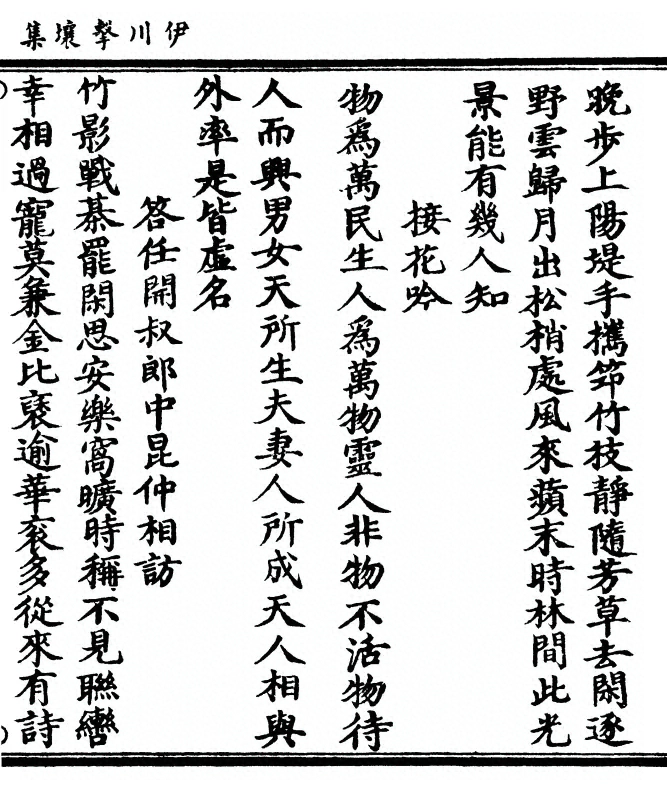 伊川擊壤集
晚步上陽堤手攜筇竹枝靜隨芳草去閑逐
野雲歸月出松梢處風來蘋末時林間此光
景能有幾人知
接花吟
物爲萬民生人爲萬物靈人非物不活物待
人而興男女天所生夫妻人所成天人相與
外率是皆虛名
答任開叔郎中昆仲相訪
竹影戰棊罷閑思安樂窩曠時稱不見聯轡
幸相過寵莫兼金比褒逾華衮多從來有詩